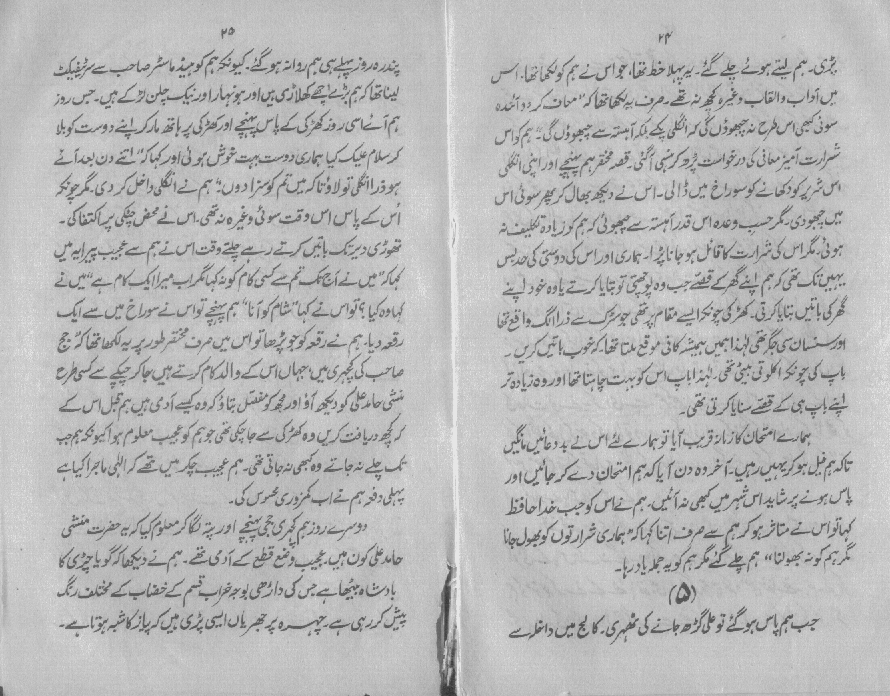 ۲۴
پڑی۔ ہم لیتے ہوئے چلے گئے۔ یہ پہلا خط تھا، جو اس نے ہم کو لکھا تھا۔ اس
میں آداب و القاب وغیرہ کچھ نہ تھے۔ صرف یہ لکھا تھا کہ "معاف کر دو آئندہ
سوئی کبھی اس طرح نہ چبھوؤں گی کہ انگلی پکے بلکہ آہستہ سے چبھوؤں گی۔" ہم کو اس
شرارت آمیز معافی کی درخواست پڑھ کر ہنسی آ گئی۔ قصہ مختصر ہم پہنچے اور اپنی انگلی
اس شریر کو دکھانے کو سوراخ میں ڈالی۔ اس نے دیکھ بھال کر پھر سوئی اس
میں چبھو دی۔ مگر حسب وعدہ اس قدر آہستہ سے چبھوئی کہ ہم کو زیادہ تکلیف نہ
ہوئی۔ مگر اس کی شرارت کا قائل ہو جانا پڑا۔ ہماری اور اس کی دوستی کی حد بس
یہیں تک تھی کہ ہم اپنے گھر کے قصے جب وہ پوچھتی تو بتایا کرتے یا وہ خود اپنے
گھر کی باتیں بتایا کرتی۔ کھڑکی چونکہ ایسے مقام پر تھی جو سڑک سے ذرا الگ واقع تھا
اور سنسان سی جگہ تھی لہٰذا ہمیں ہمیشہ کافی موقع ملتا تھا کہ خوب باتیں کریں۔
باپ کی چونکہ اکلوتی بیٹی تھی۔ لہٰذا باپ اس کو بہت چاہتا تھا اور وہ زیادہ تر
اپنے باپ ہی کے قصے سنایا کرتی تھی۔
ہمارے امتحان کا زمانہ قریب آیا تو ہمارے لئے اس نے بد دعائیں مانگیں
تاکہ ہم فیل ہو کر یہیں رہیں۔ آخر وہ دن آیا کہ ہم امتحان دے کر جائیں اور
پاس ہونے پر شاید اس شہر میں کبھی نہ آئیں۔ ہم نے اس کو جب خدا حافظ
کہا تو اس نے متاثر ہو کر ہم سے صرف اتنا کہا کہ "ہماری شرارتوں کو بھول جانا
مگر ہم کو نہ بھولنا" ہم چلے گئے مگر ہم کو یہ جملہ یاد رہا۔
(۵)
جب ہم پاس ہو گئے تو علی گڑھ جانے کی ٹھہری۔ کالج میں داخلہ سے
۲۵
پندرہ روز پہلے ہی ہم روانہ ہو گئے۔ کیونکہ ہم کو ہیڈ ماسٹر صاحب سے سرٹیفکیٹ
لینا تھا کہ ہم بڑے اچھے کھلاڑی ہیں اور ہونہار اور نیک چلن لڑکے ہیں۔ جس روز
ہم آئے اسی روز کھڑکی کے پاس پہنچے اور کھڑکی پر ہاتھ مار کر اپنے دوست کو بلا
کر سلام علیک کیا ہماری دوست بہت خوش ہوئی اور کہا کہ "اتنے دن بعد آئے
ہو ذرا انگلی تو لاؤ تاکہ میں تم کو سزا دوں۔" ہم نے انگلی داخل کر دی۔ مگر چونکہ
اُس کے پاس اس وقت سوئی وغیرہ نہ تھی۔ اس نے محض چٹکی پر اکتفا کی۔
تھوڑی دیر تک باتیں کرتے رہے چلتے وقت اس نے ہم سے عجیب پیرایہ میں
کہا کہ "میں نے آج تک تم سے کسی کام کو نہ کہا مگر اب میرا ایک کام ہے" میں نے
کہا وہ کیا؟ تو اس نے کہا "شام کو آنا" ہم پہنچے تو اس نے سوراخ میں سے ایک
رقعہ دیا۔ ہم نے رقعہ کو جو پڑھا تو اس میں صرف مختصر طور پر یہ لکھا تھا کہ "جج
صاحب کی کچہری میں، جہاں اس کے والد کام کرتے ہیں جا کر چپکے سے کسی طرح
منشی حامد علی کو دیکھ آؤ اور مجھ کو مفصل بتاؤ کہ وہ کیسے آدمی ہیں ہم قبل اس کے
کہ کچھ دریافت کریں وہ کھڑکی سے جا چکی تھی جو ہم کو عجیب معلوم ہوا کیونکہ ہم جب
تک چلے نہ جاتے وہ کبھی نہ جاتی تھی۔ ہم عجیب چکر میں تھے کہ الٰہی ماجرا کیا ہے
پہلی دفعہ ہم نے اب کمزوری محسوس کی۔
دوسرے روز ہم کچہری ججی پہنچے اور پتہ لگا کر معلوم کیا کہ یہ حضرت منشی
حامد علی کون ہیں۔ عجیب وضع قطع کے آدمی تھے۔ ہم نے دیکھا کہ گویا چڑی کا
بادشاہ بیٹھا ہے جس کی داڑھی بوجہ خراب قسم کے خضاب کے مختلف رنگ
پیش کر رہی ہے۔ چہرہ پر جھریاں ایسی پڑی ہیں کہ پیاز کا شبہ ہوتا ہے۔